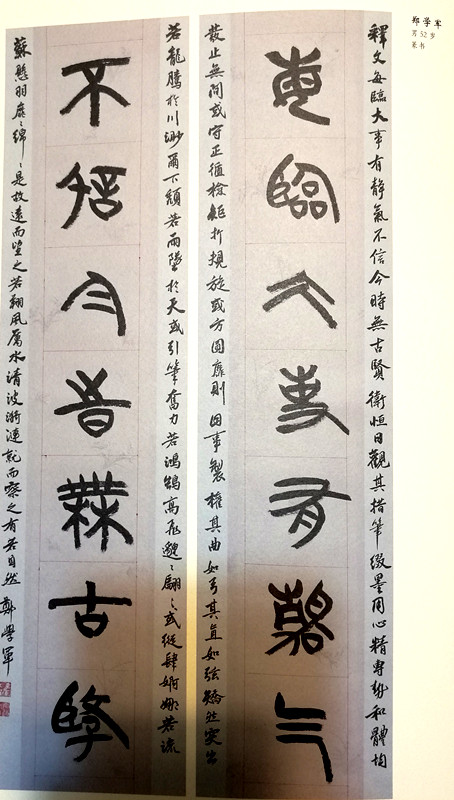 郑学军
男 52岁
篆书
釋文每臨大事有静氣不信今時無古賢 衛恒曰觀其措筆綴墨用心精專勢和體均
每臨大事有靜氣
發止無間或守正循檢矩折規旋或方圓靡則因事製權其曲如弓其直如弦矯然突出
若龍騰於川渺爾下頹若雨墜於天或引筆奮力若鴻鵠高飛邈〻翩〻或縱肆婀娜若流
不信今時無古賢
蘇懸羽靡〻綿〻是故遠而望之若翔風厲水清波漪漣就而察之有若自然 鄭學軍